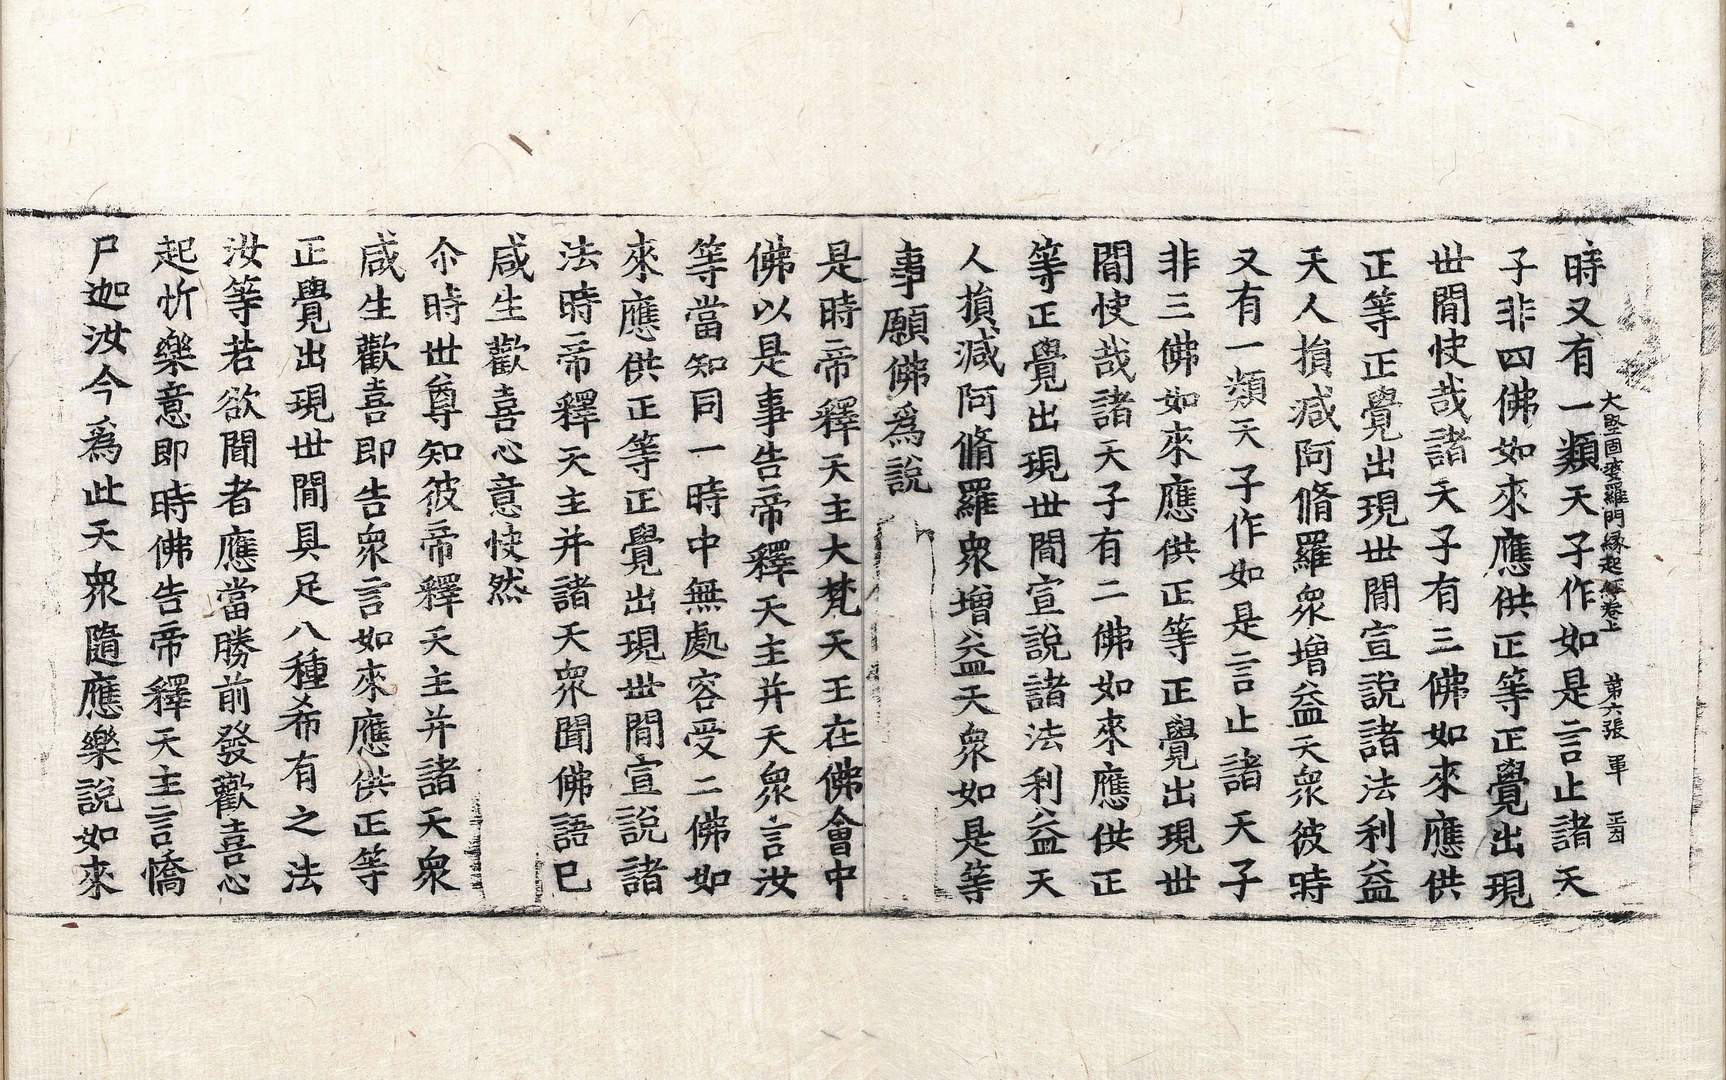 大堅固婆羅門緣起經卷上 第六張 軍
時又有一類天子作如是言止諸天
子非四佛如來應供正等正覺出現
世間快哉諸天子有三佛如來應供
正等正覺出現世間宣說諸法利益
天人損減阿脩羅衆增益天衆彼時
又有一類天子作如是言止諸天子
非三佛如來應供正等正覺出現世
間快哉諸天子有二佛如來應供正
等正覺出現世間宣說諸法利益天
人損減阿脩羅衆增益天衆如是等
事願佛爲說
是時帝釋天主大梵天王在佛會中
佛以是事告帝釋天主并天衆言汝
等當知同一時中無處容受二佛如
來應供正等正覺出現世間宣說諸
法時帝釋天主并諸天衆聞佛語已
咸生歡喜心意快然
尒時世尊知彼帝釋天主并諸天衆
咸生歡喜即告衆言如來應供正等
正覺出現世間具足八種希有之法
汝等若欲聞者應當勝前發歡喜心
起忻樂意即時佛告帝釋天主言憍
尸迦汝今爲此天衆隨應樂說如來